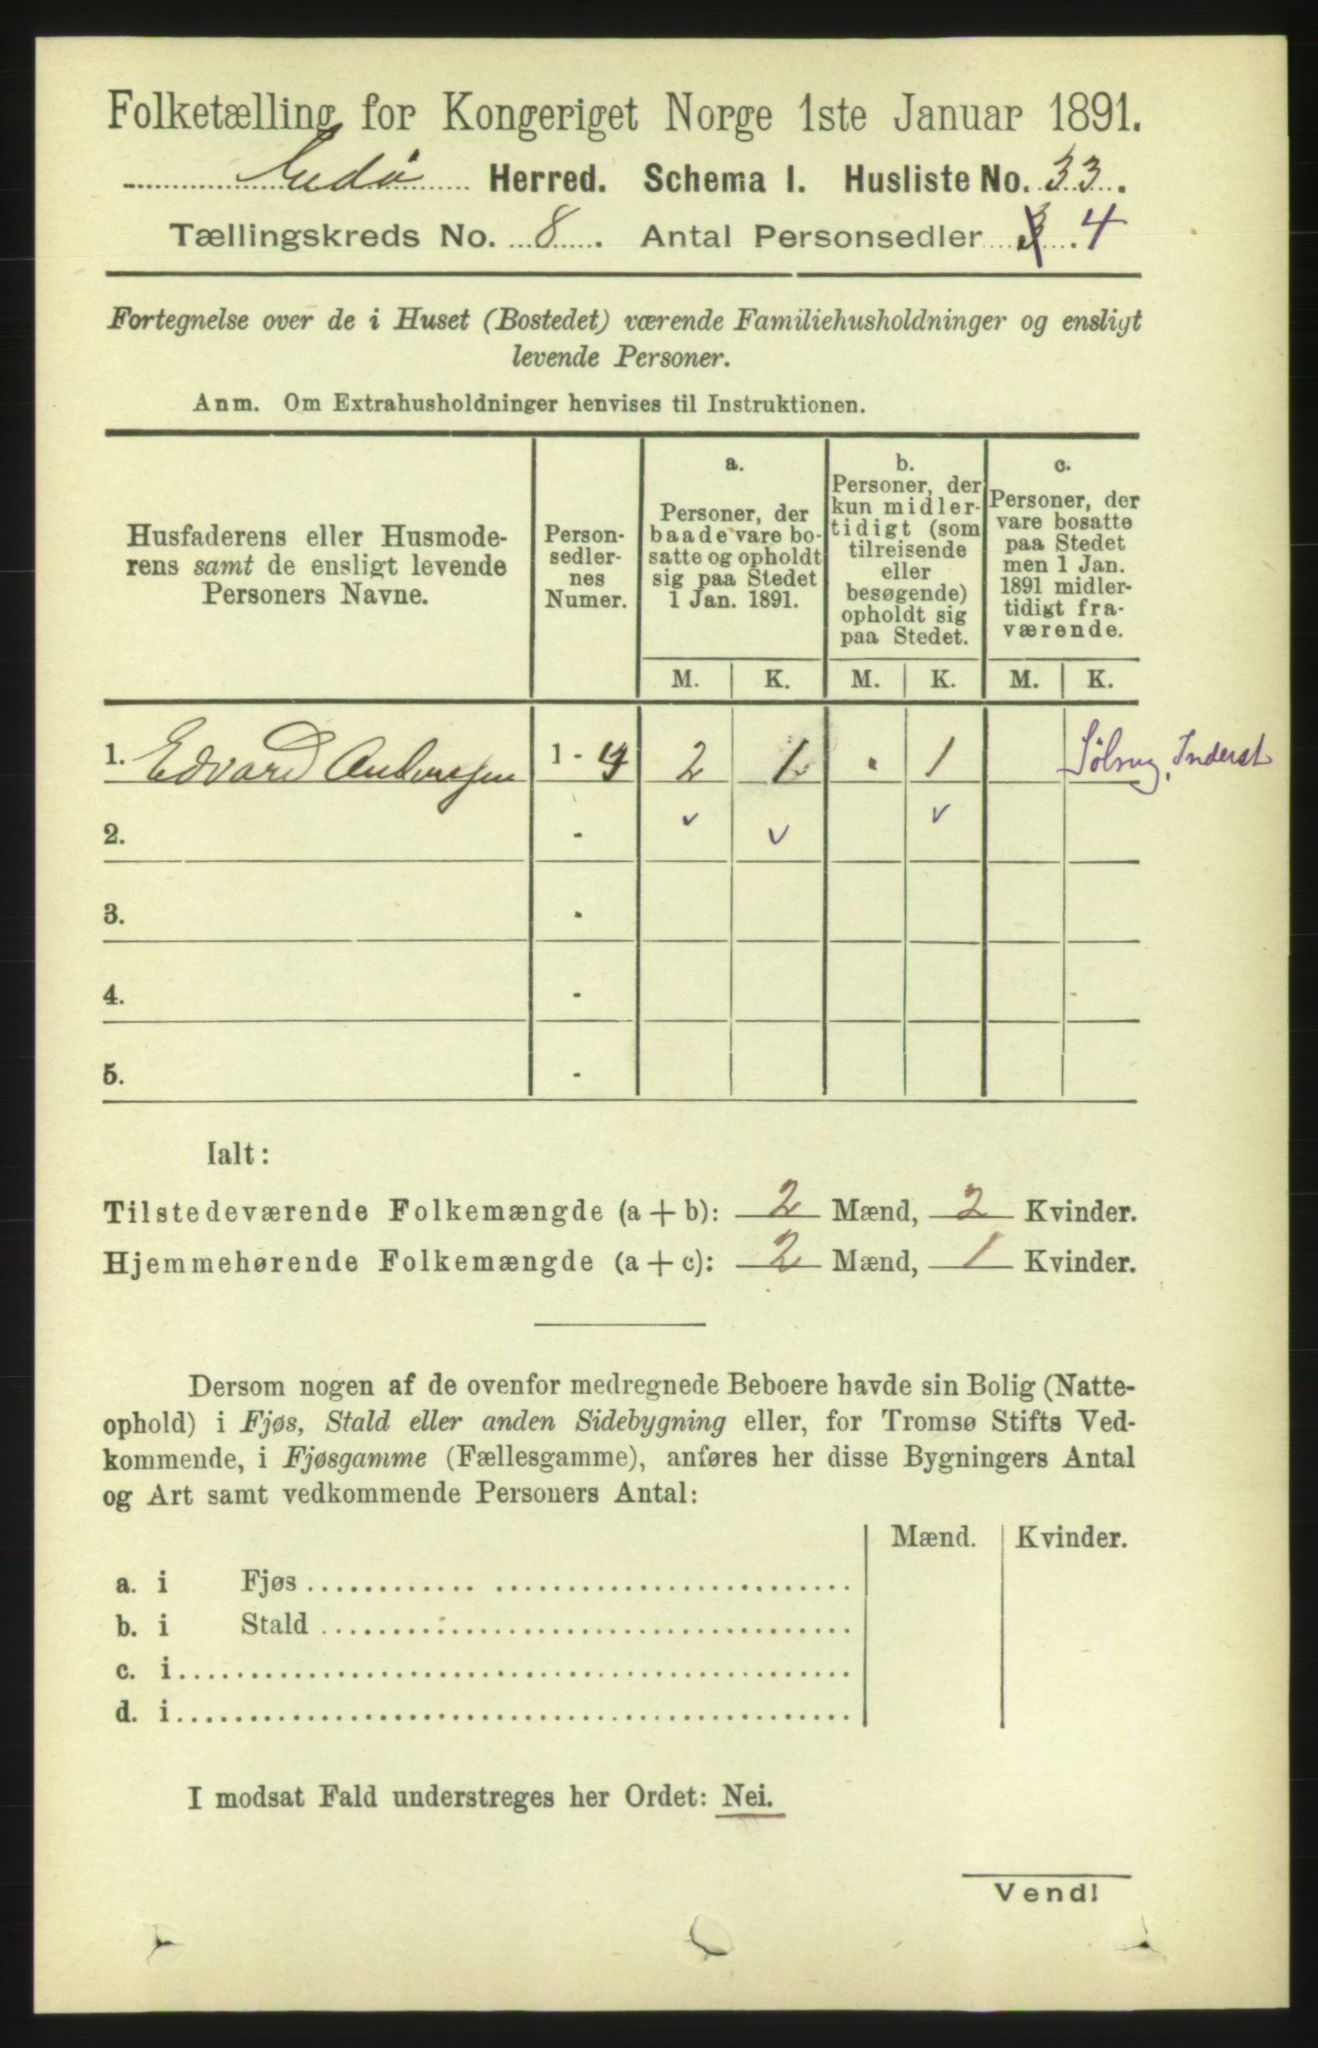 Folketælling for Kongeriget Norge 1ste Januar 1891.
Edø Herred. Schema I. Husliste No. 33.
Tællingskreds No. 8. Antal Personsedler 3 4
Fortegnelse over de i Huset (Bostedet) værende Familiehusholdninger og ensligt
levende Personer.
Anm. Om Extrahusholdninger henvises til Instruktionen.
Husfaderens eller Husmode-
rens samt de ensligt levende
Personers Navne.
Person-
sedler-
nes
Numer.
a.
Personer, der
baade vare bo-
satte og opholdt
sig paa Stedet
1 Jan. 1891.
b.
Personer, der
kun midler-
tidigt (som
tilreisende
eller
besøgende)
opholdt sig
paa Stedet.
c.
Personer, der
vare bosatte
paa Stedet
men 1 Jan.
1891 midler-
tidigt fra-
værende.
M. K. M. K. M. K.
1. Edvard 1 - 4 2 1 . 1
2. -
3. -
4. -
5. -
Ialt:
Tilstedeværende Folkemængde (a + b): 2 Mænd, 2 Kvinder.
Hjemmehørende Folkemængde (a + c): 2 Mænd, 1 Kvinder.
Dersom nogen af de ovenfor medregnede Beboere havde sin Bolig (Natte-
ophold) i Fjøs, Stald eller anden Sidebygning eller, for Tromsø Stifts Ved-
kommende, i Fjøsgamme (Fællesgamme), anføres her disse Bygningers Antal
og Art samt vedkommende Personers Antal:
Mænd. Kvinder.
a. i Fjøs
b. i Stald
c. i
d. i
I modsat Fald understreges her Ordet: Nei.
Vend!